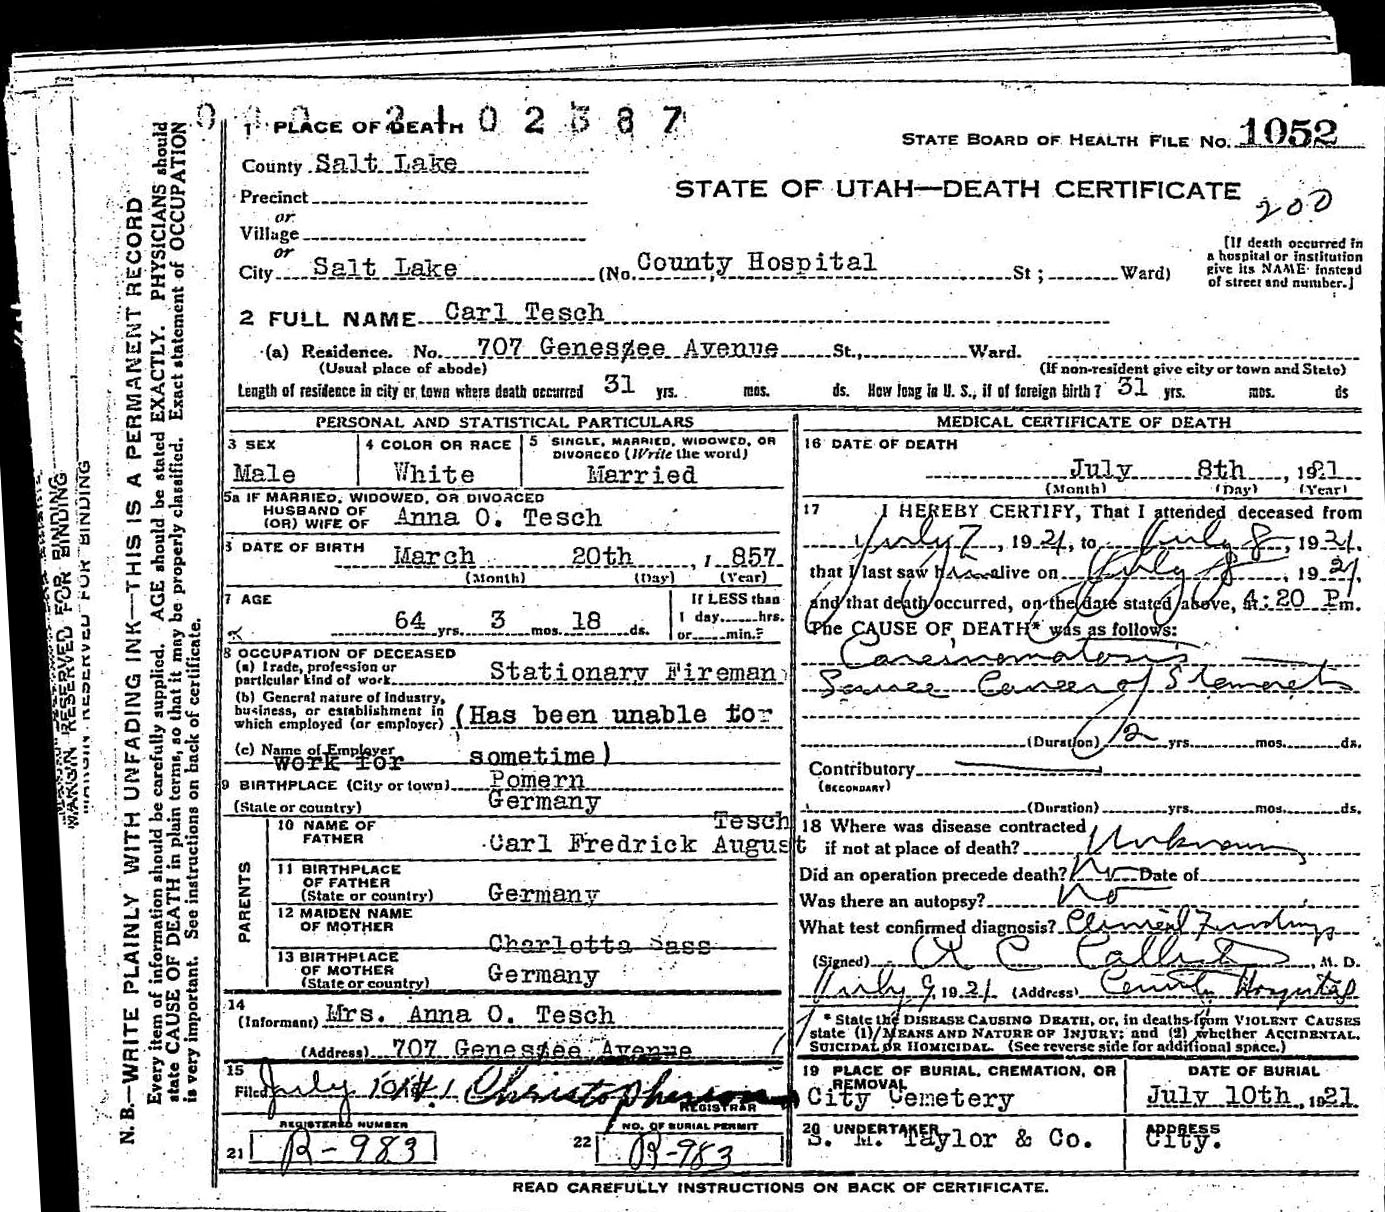 0 0 0 2 1 0 2 3 8 7
1 PLACE OF DEATH
STATE BOARD OF HEALTH FILE No. 1052
County Salt Lake
STATE OF UTAH—DEATH CERTIFICATE
200
Precinct
or
Village
or
City Salt Lake (No. County Hospital St ; Ward)
[If death occurred in
a hospital or institution
give its NAME instead
of street and number.]
2 FULL NAME Carl Tesch
(a) Residence. No. 707 Genessee Avenue St., Ward.
(Usual place of abode) (If non-resident give city or town and State)
Length of residence in city or town where death occurred 31 yrs. mos. ds. How long in U. S., if of foreign birth? 31 yrs. mos. ds
PERSONAL AND STATISTICAL PARTICULARS
3 SEX
Male
4 COLOR OR RACE
White
5 SINGLE, MARRIED, WIDOWED, OR
DIVORCED (Write the word)
Married
5a IF MARRIED, WIDOWED, OR DIVORCED
HUSBAND OF
(OR) WIFE OF Anna O. Tesch
6 DATE OF BIRTH March 20th , 1 857
(Month) (Day) (Year)
7 AGE
64 yrs. 3 mos. 18 ds.
If LESS than
1 day hrs.
or min.?
8 OCCUPATION OF DECEASED
(a) Trade, profession or
particular kind of work Stationary Fireman
(b) General nature of industry,
business, or establishment in
which employed (or employer) (Has been unable for
(c) Name of Employer
work for sometime)
9 BIRTHPLACE (City or town) Pomern
(State or country) Germany
PARENTS
10 NAME OF
FATHER
Tesch
Carl Fredrick August
11 BIRTHPLACE
OF FATHER
(State or country) Germany
12 MAIDEN NAME
OF MOTHER
Charlotta Sass
13 BIRTHPLACE
OF MOTHER
(State or country) Germany
14
(Informant) Mrs. Anna O. Tesch
(Address) 707 Genessee Avenue
15
Filed July 10 Christopherson
REGISTRAR
REGISTERED NUMBER
21 R-983
NO. OF BURIAL PERMIT
22 R-983
MEDICAL CERTIFICATE OF DEATH
16 DATE OF DEATH
July 8th , 1921
(Month) (Day) (Year)
17 I HEREBY CERTIFY, That I attended deceased from
July 7 , 1921, to July 8 , 1921.
that I last saw him alive on July 8 , 1921,
and that death occurred, on the date stated above, at 4:20 P.m.
The CAUSE OF DEATH* was as follows:
Carcinomatosis
Source Cancer of Stomach
(Duration) 1/2 yrs. mos. ds.
Contributory
(SECONDARY)
(Duration) yrs. mos. ds.
18 Where was disease contracted
if not at place of death? Unknown
Did an operation precede death? No Date of
Was there an autopsy? No
What test confirmed diagnosis? Clinical Findings
(Signed) C , M. D.
July 9, 1921 (Address) County Hospital
* State the DISEASE CAUSING DEATH, or, in deaths from VIOLENT CAUSES
state (1) MEANS AND NATURE OF INJURY; and (2) whether ACCIDENTAL,
SUICIDAL OR HOMICIDAL. (See reverse side for additional space.)
19 PLACE OF BURIAL, CREMATION, OR
REMOVAL
City Cemetery
DATE OF BURIAL
July 10th , 1921
20 UNDERTAKER
S. M. Taylor & Co.
ADDRESS
City.
READ CAREFULLY INSTRUCTIONS ON BACK OF CERTIFICATE.
MARGIN RESERVED FOR BINDING
N. B.—WRITE PLAINLY WITH UNFADING INK—THIS IS A PERMANENT RECORD
Every item of information should be carefully supplied. AGE should be stated EXACTLY. PHYSICIANS should
state CAUSE OF DEATH in plain terms, so that it may be properly classified. Exact statement of OCCUPATION
is very important. See instructions on back of certificate.